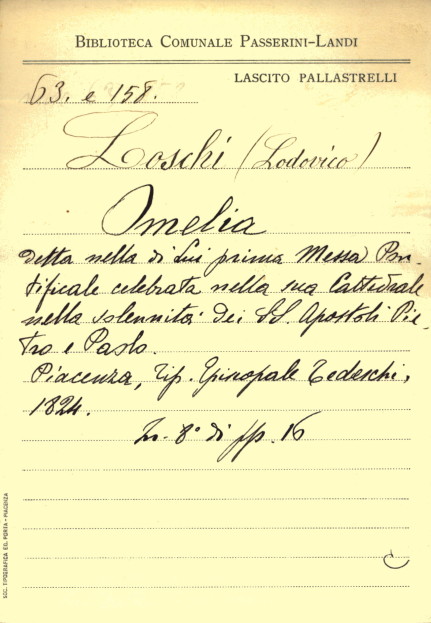 BIBLIOTECA COMUNALE PASSERINI-LANDI
LASCITO PALLASTRELLI
63. e 158.
Loschi (Lodovico)
Omelia
detta nella di Lui prima Messa Pon-
tificale celebrata nella sua Cattedrale
nella solennità dei S.S. Apostoli Pie-
tro e Paolo.
Piacenza, Tip. Episcopale Tedeschi,
1824.
In-8° di pp. 16
C
SOC. TIPOGRAFICA ED. PORTA - PIACENZA